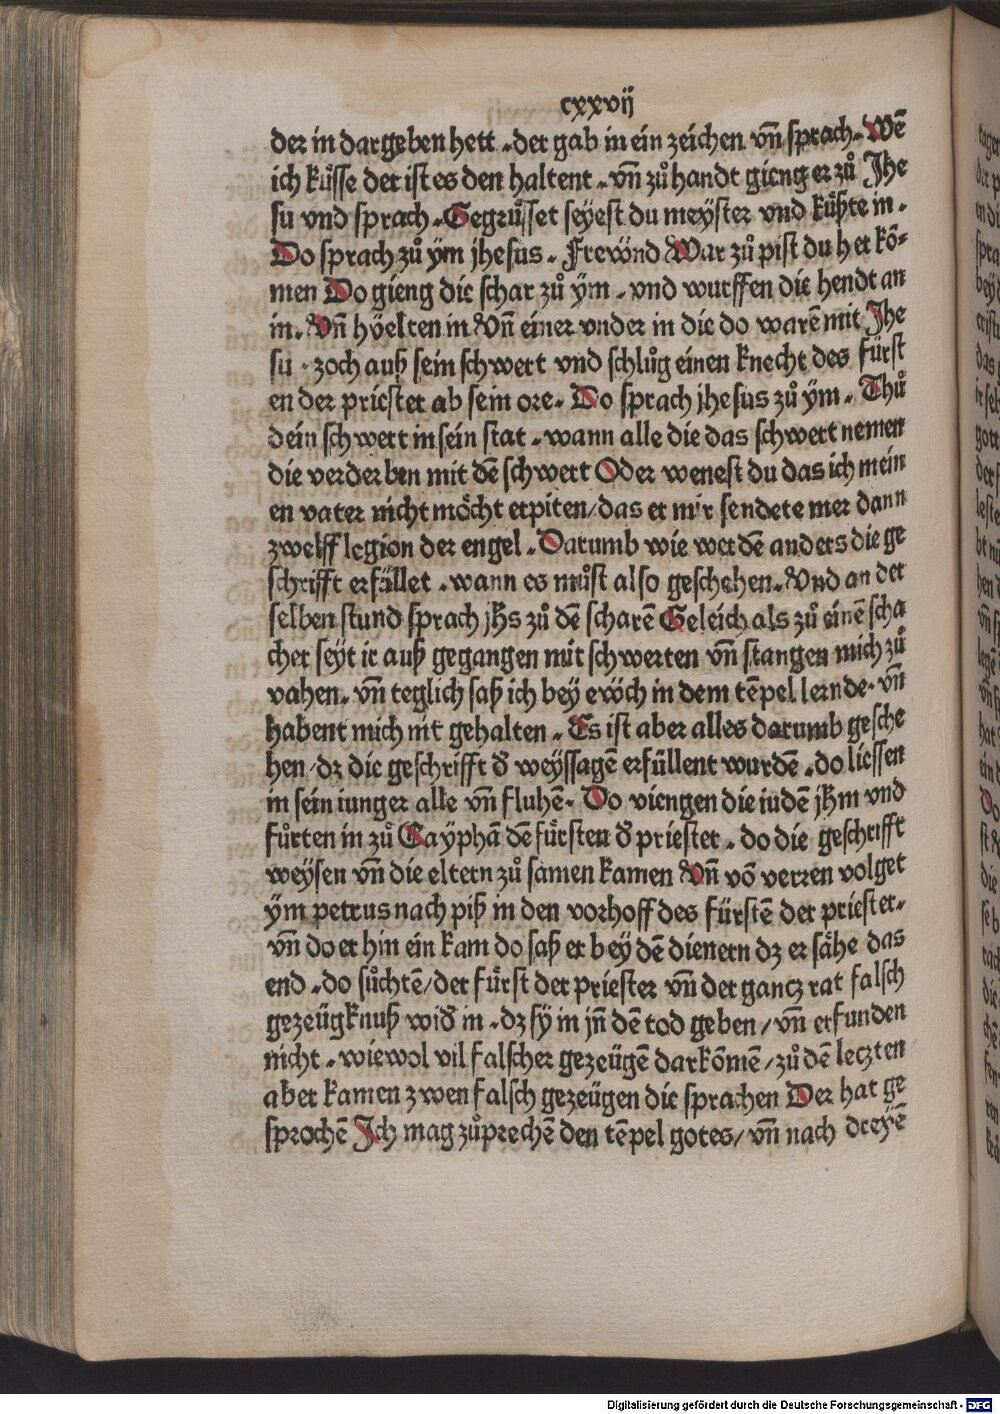 cxxvij
der in dargeben hett. der gab in ein zeichen vn̄ sprach. Wē
ich küsse der ist es den haltent. vn̄ zuͦ handt gieng er zuͦ Jhe
su vnd sprach. Gegruͤsset seyest du meyster vnd kuͤßte in.
Do sprach zuͦ ÿm jhesus. Frewnd War zuͦ pist du her kō-
men Do gieng die schar zuͦ ÿm. vnd wurffen die hendt an
in. Vn̄ hÿelten in Vn̄ einer vnder in die do warē mit Jhe
su. zoch auß sein schwert vnd schluͦg einen knecht des fürst
en der priester ab sein ore. Do sprach jhesus zuͦ ÿm. Thuͦ
dein schwert in sein stat. wann alle die das schwert nemen
die verderben mit dē schwert Oder wenest du das ich mein
en vater nicht möcht erpiten/das er mir sendete mer dann
zwelff legion der engel. Darumb wie werdē anders die ge
schrifft erfället. wann es muͦst also geschehen. Vnd an der
selben stund sprach jhs zuͦ dē scharē Geleich als zuͦ einē scha
cher seyt ir auß gegangen mit schwerten vn̄ stangen mich zuͦ
vahen. vn̄ teglich saß ich bey ewch in dem tēpel lernde. vn̄
habent mich nit gehalten. Es ist aber alles darumb gesche
hen/dz die geschrifft d̕ weyssagē erfüllent wurdē. do liessen
in sein iunger alle vn̄ fluhē. Do viengen die iudē jhm vnd
fuͤrten in zuͦ Cayphā dē fürsten d̕ priester. do die geschrifft
weysen vn̄ die eltern zuͦ samen kamen Vn̄ vō verren volget
ÿm petrus nach piß in den vorhoff des fürstē der priester.
vn̄ do er hin ein kam do saß er bey dē dienern dz er sähe das
end. do suͦchtē/der fürst der priester vn̄ der gancz rat falsch
gezeügknuß wid̕ in. dz sÿ in jn̄ dē tod geben/vn̄ erfunden
nicht. wiewol vil falscher gezeügē darkōmē/zuͦ dē leczten
aber kamen zwen falsch gezeügen die sprachen Der hat ge
sprochē Ich mag zuͦprechē den tēpel gotes/vn̄ nach dreyē
Digitalisierung gefördert durch die Deutsche Forschungsgemeinschaft - DFG